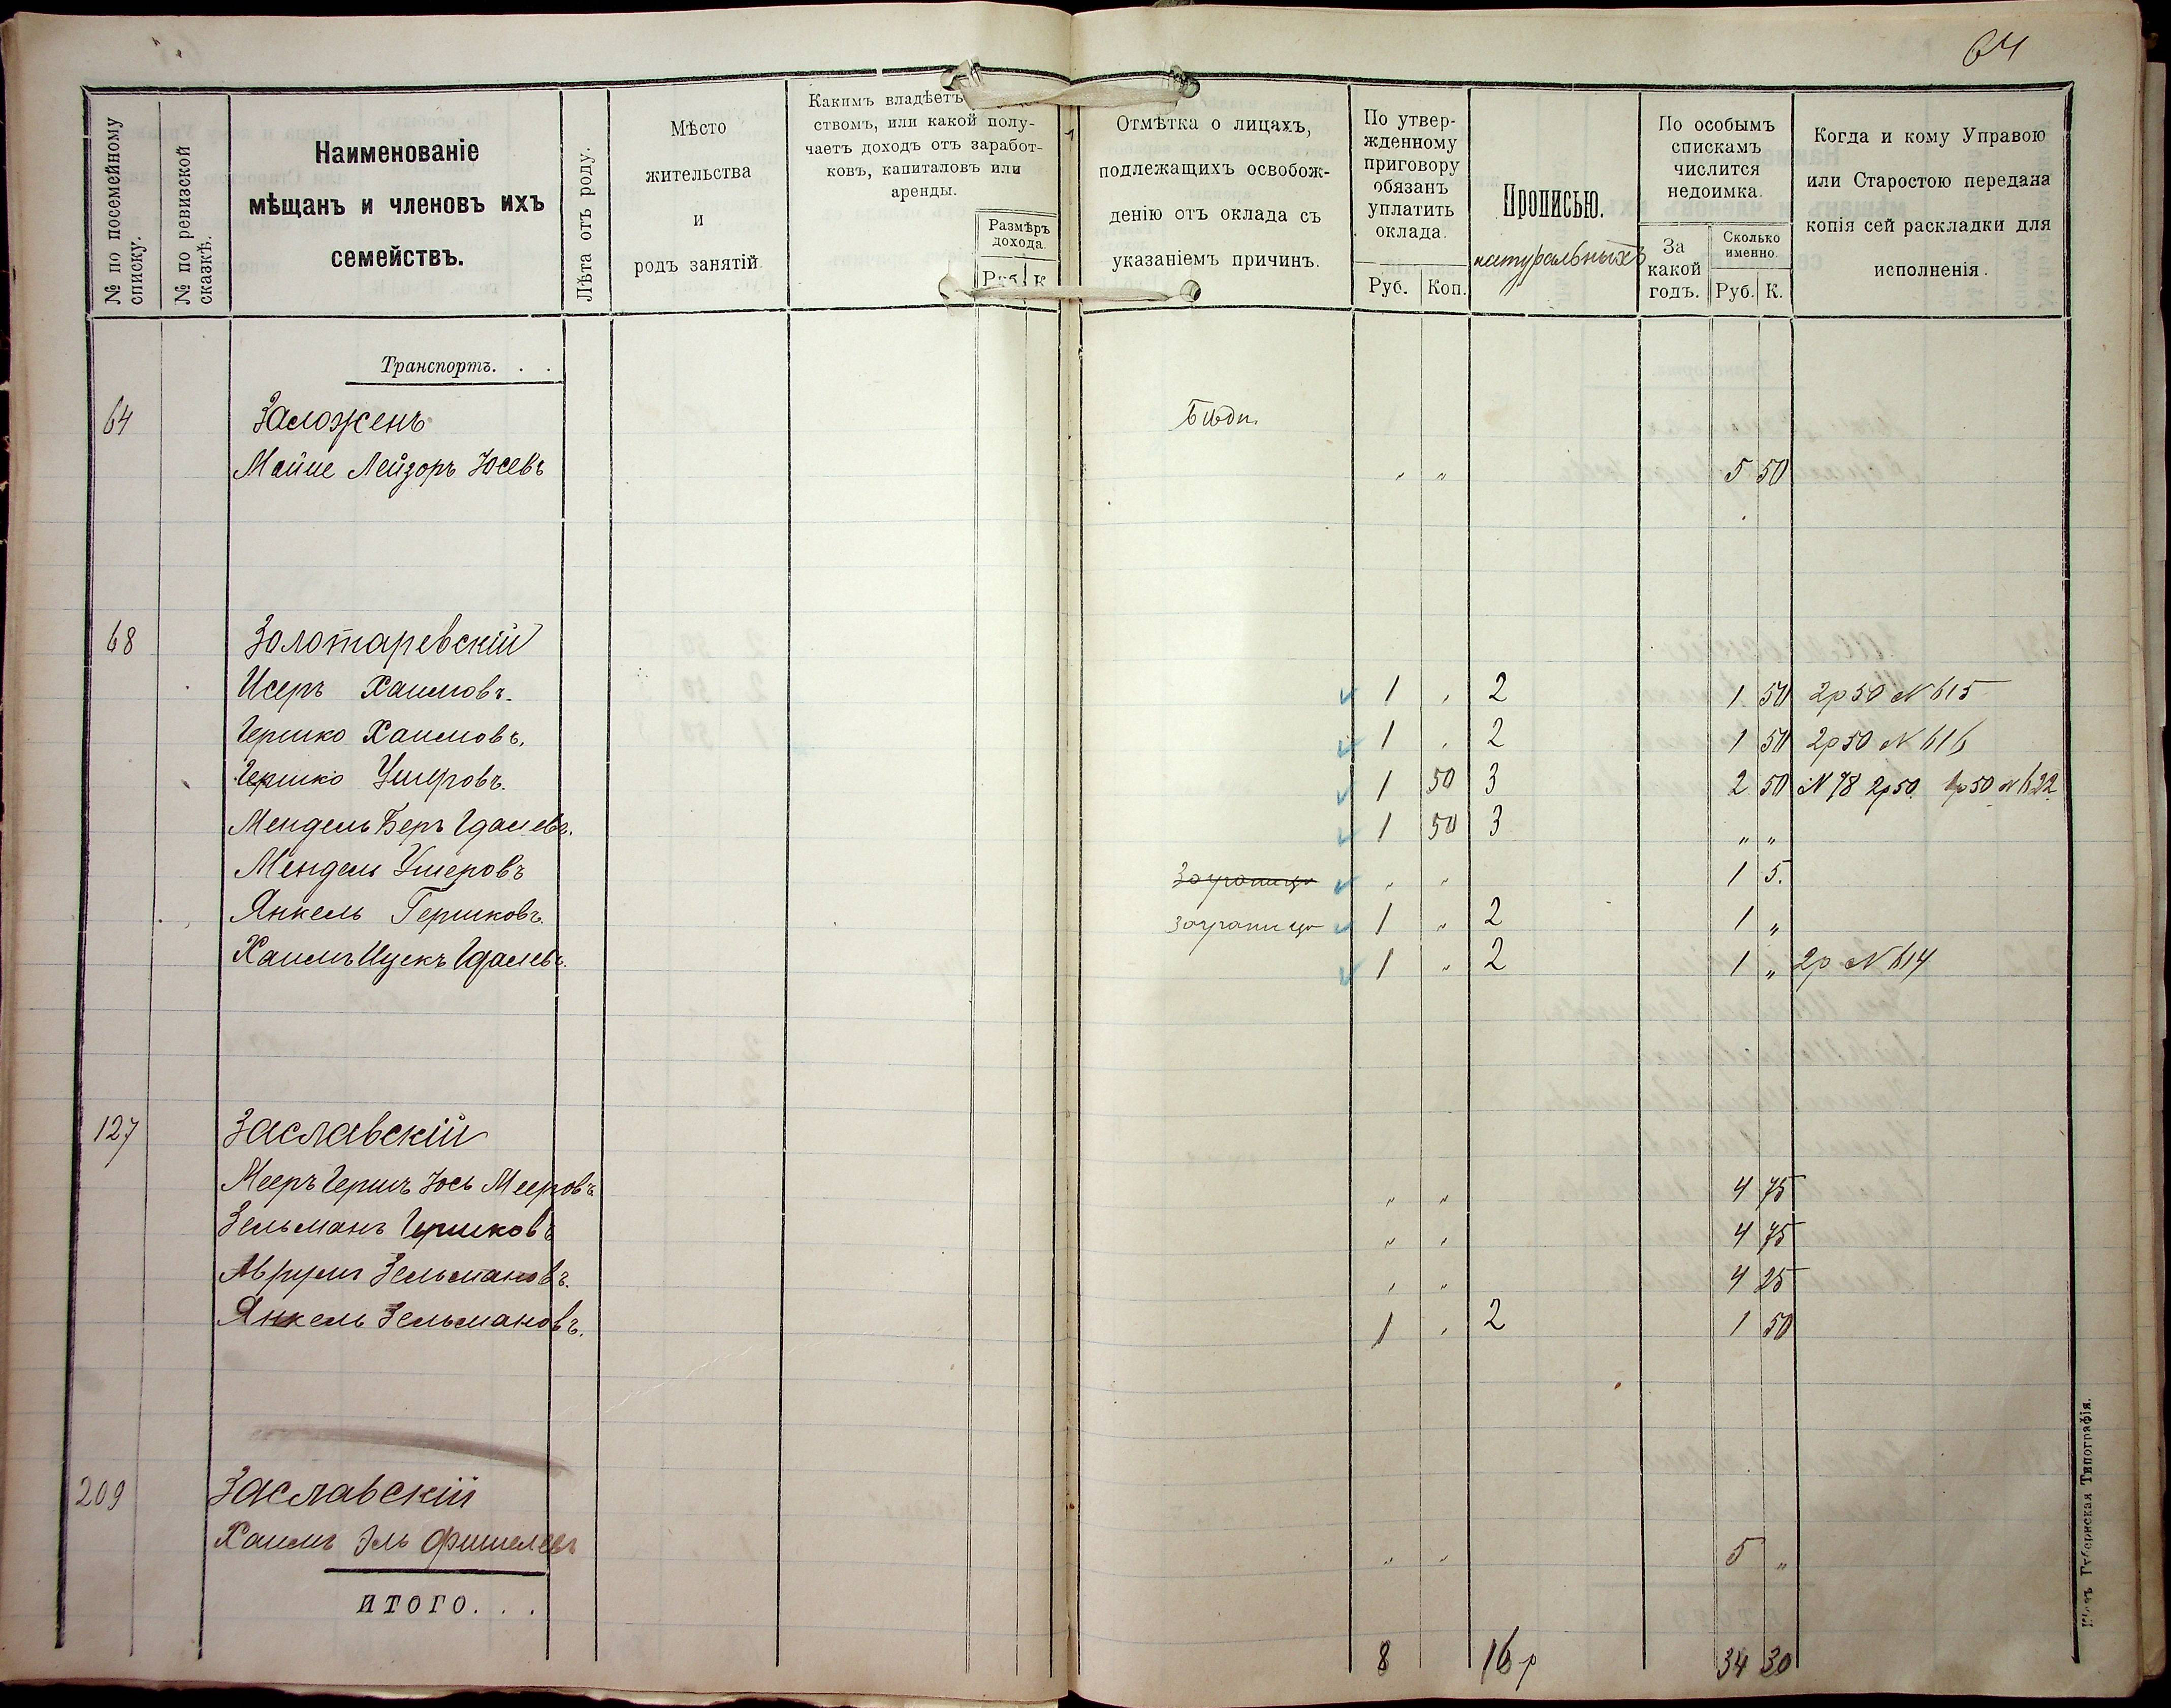 64
№ по посемейному списку.
№ по ревизской сказкѣ.
Наименованіе
мѣщанъ и членовъ ихъ
семействъ.
Лѣта отъ роду.
Мѣсто
жительства
и
родъ занятій
Какимъ владѣетъ
ствомъ, или какой полу-
чаетъ доходъ отъ заработ-
ковъ, капиталовъ или
аренды.
Размѣръ
дохода.
Руб. К
Отмѣтка о лицахъ,
подлежащихъ освобож-
денію отъ оклада съ
указаніемъ причинъ.
По утвер-
жденному
приговору
обязанъ
уплатить
оклада.
Руб. Коп.
Прописью.
натуральныхъ
По особымъ
спискамъ
числится
недоимка.
За
какой
годъ.
Сколько
именно.
Руб. К.
Когда и кому Управою
или Старостою передана
копія сей раскладки для
исполненія.
Транспортъ. . .
64 Заложенъ Бѣдн.
Мойше Лейзоръ Іосевъ „ „ 5 50
68 Золотаревскій
Исеръ Хаимовъ. 1 „ 2 1 50 2р50 N 615
Гершко Хаимовъ. 1 „ 2 1 50 2р50 N 616
Гершко Ушеровъ. 1 50 3 2 50 N 78 2р50. 4р50 N 622
Мендель Беръ Гдалевъ. 1 50 3 „ „
Мендель Ушеровъ Заграницу „ „ 1 5.
Янкель Гершковъ. заграницу 1 „ 2 1 „
Хаимъ Ицекъ Гдалевъ. 1 „ 2 1 „ 2р N 614
127 Заславскій
Мееръ Гершъ Іось Мееровъ „ „ 4 75
Зельманъ Гершковъ „ „ 4 75
Аврумъ Зельмановъ. „ „ 4 25
Янкель Зельмановъ. 1 „ 2 1 50
209 Заславскій
Хаимъ Эль Фишелевъ „ „ 5 „
ИТОГО. . .
8 16р 34 30
Губернская Типографія.